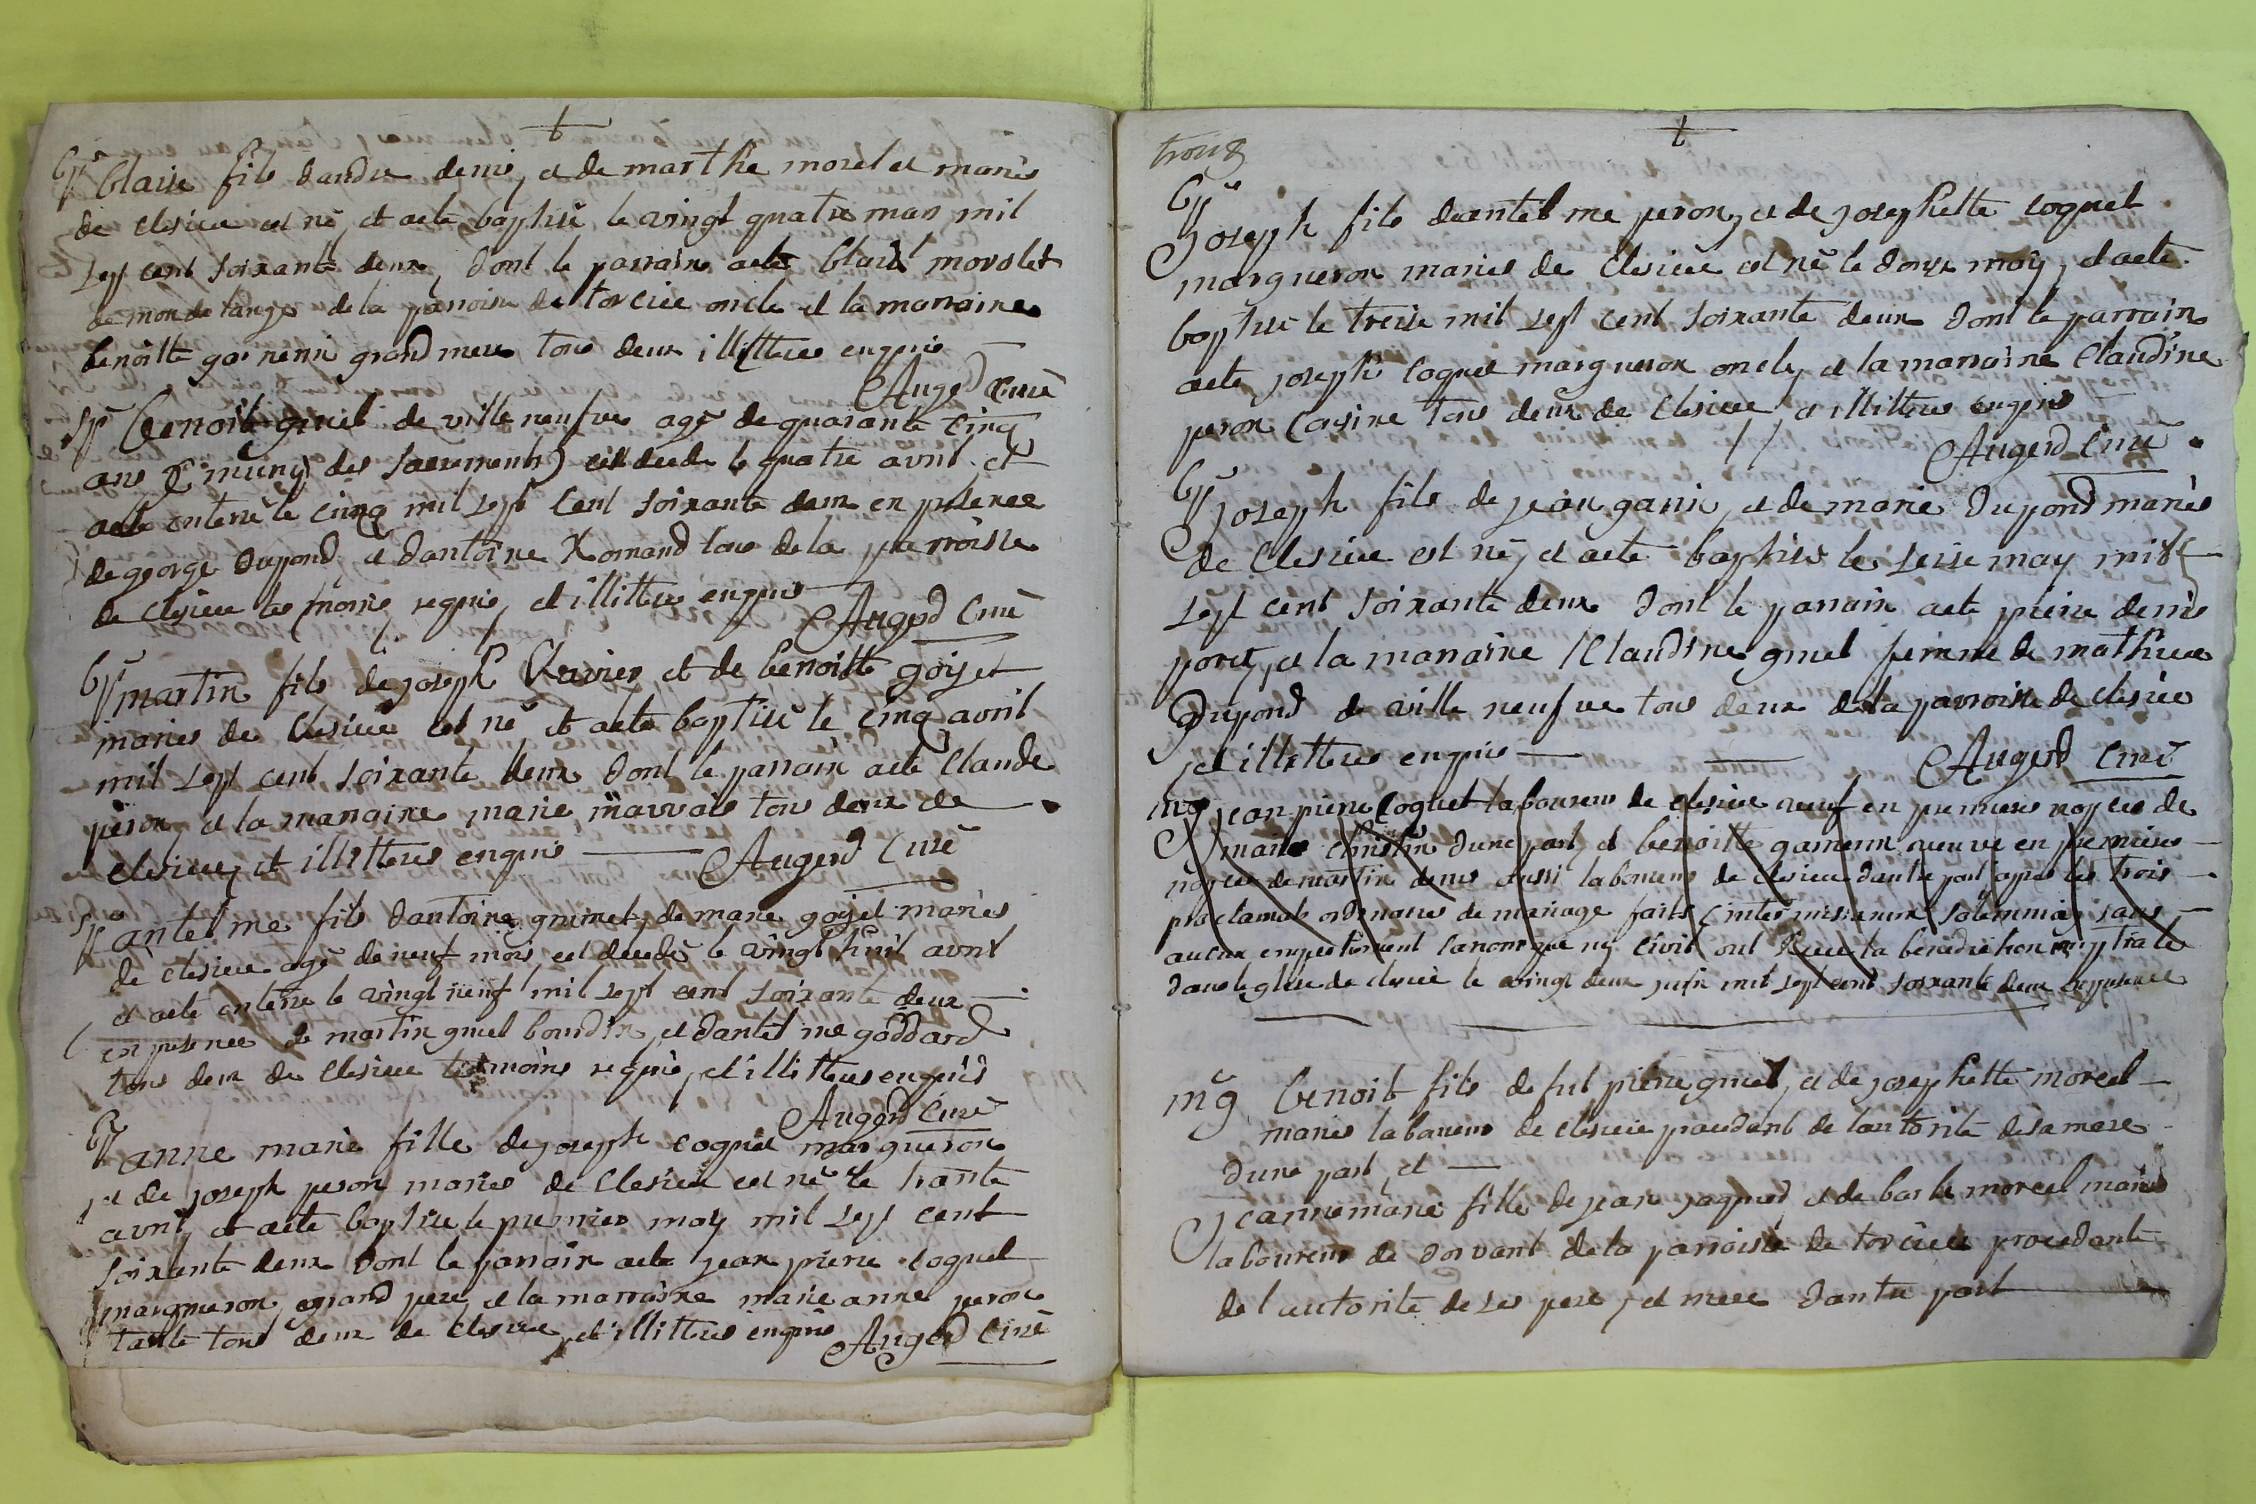 t
bp Blaise fils dandre denis, et de marthe morel et maries
de clesieu est né, et aeté baptisé le vingt quatre mars mil
sept cent soixante deux, dont le parrain aeté blaise
de la parroisse de torcieu oncle et la marraine
benoitte garnenir grand mere tous deux illitteres enquis
Augerd Curé
sp Benoit grinel de villeneufve agé de quarante cinq
ans (muny des sacrements) est decedé le quatre avril et
aeté enterré le cinq mil sept cent soixante deux en presence
de george dupond, et dantoine Romand tous de la parroisse
de clesieu temoins requis, et illitteres enquis
Augerd Curé
bp martin fils de joseph et de benoitte goyet
maries de clesieu est né, et aeté baptisé le cinq avril
mil sept cent soixante deux dont le parrain aeté Claude
peron, et la marraine marie mauvais tous deux de
clesieu, et illitteres enquis Augerd Curé
sp antelme fils dantoine grimet, de marie goyet maries
de clesieu agé de neuf mois, est decedé le vingt huit avril
et aeté enterré le vingt neuf mil sept cent soixante deux
en presence de martin grinel bourdin, et dantelme goddard
tous deux de clesieu temoins requis, et illitteres enquis
Augerd Curé
bp anne marie fille de joseph coquet margueron
et de joseph peron maries de clesieu est né le trante
avril, et aeté baptisée le premier may mil sept cent
soixante deux dont le parrain aeté jean pierre coquet
margueron, grand pere, et la marraine marie anne peron
tante tous deux de clesieu, et illitteres enquis Augerd Curé
t
bp
joseph fils dantelme peron, et de josephette coquet
margueron maries de clesieu est né le douze may, et aeté
baptisé le treise mil sept cent soixante deux dont le parrain
aeté joseph coquet margueron oncle, et la marraine Claudine
peron cousine tous deux de clesieu, et illitteres enquis
Augerd Curé
bp joseph fils de jean garin, et de marie dupond maries
de clesieu est né, et aeté baptisé le seise may mil
sept cent soixante deux dont le parrain aeté pierre denis
poret, et la marraine Claudine grinel femme de mathieu
dupond de ville neufve tous deux de la parroisse de clesieu
et illitteres enquis Augerd Curé
mg jean pierre coquet laboureur de clesieu veuf en premieres nopces de
marie christin dune part, et benoitte garnenir veuve en premieres
nopces de martin denis aussi laboureur de clesieu dautre part apres les trois
proclamats ordinaires de mariage faits solemnia, sans
aucun empechement canonique ny civil ont receu la benediction nuptiale
dans leglise de clesieu le vingt deux juin mil sept cent soixante deux en presence
mg benoit fils de fut pierre grinel, et de josephette morcel
maries laboureur de clesieu procedant de lautorité de sa mere
dune part, et
jeanne marie fille de jean jaquod et de morcel maries
laboureur de dorvant de la parroisse de torcieu procedante
de l autorité de ses pere, et mere dautre part